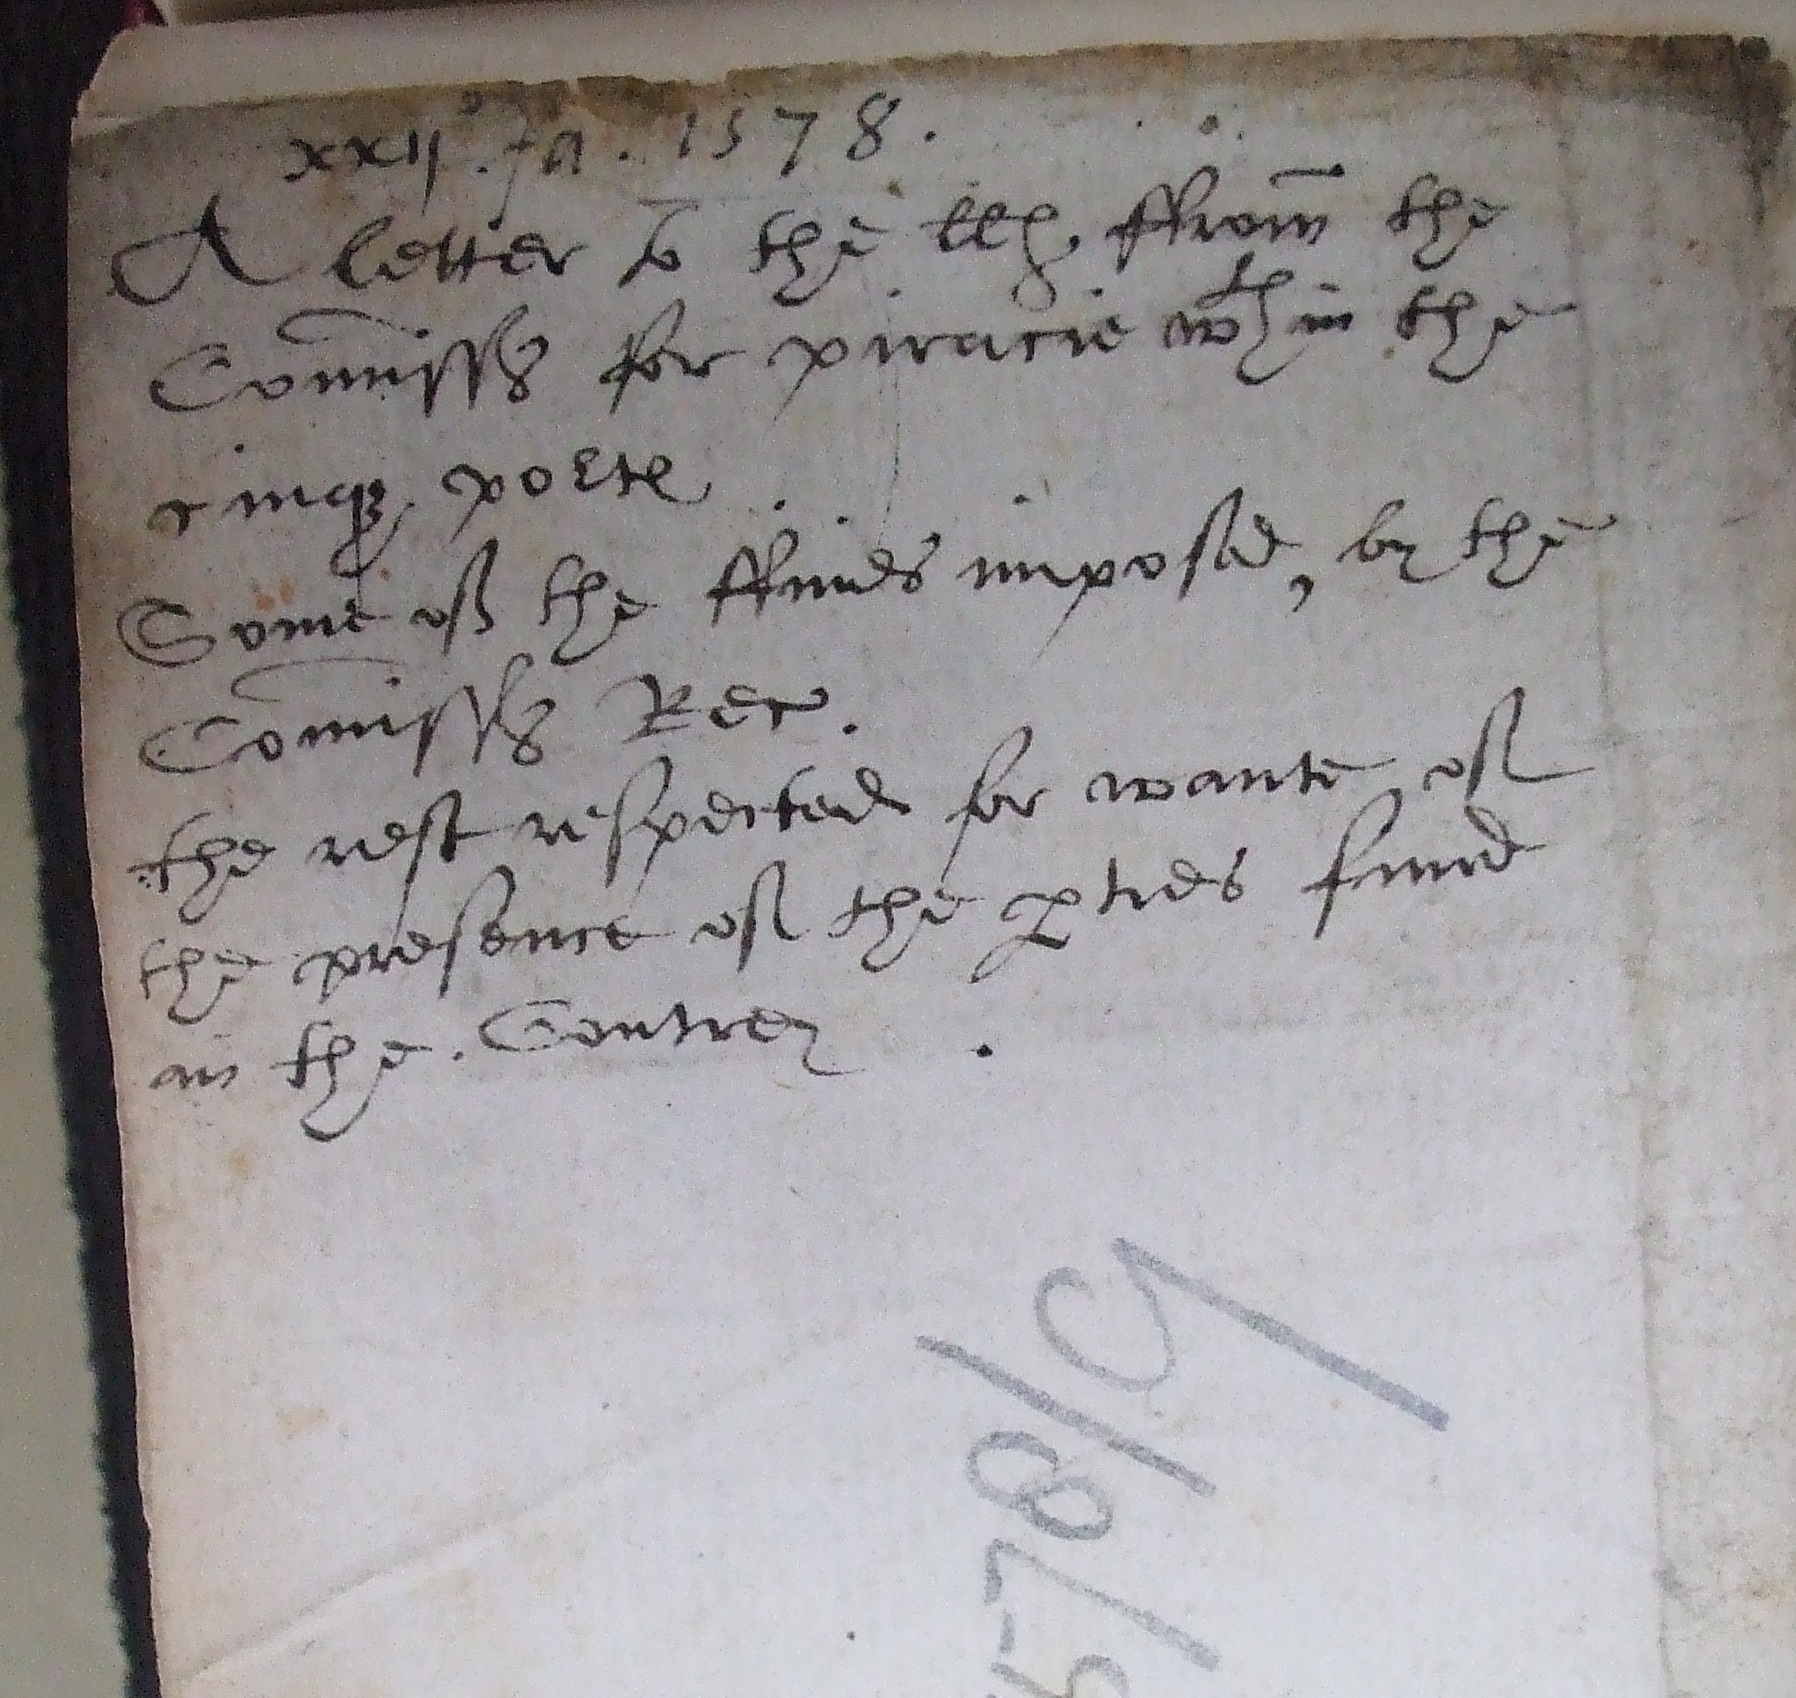 xxijº. Ja. 1578.
A letter to the llp. ffrom̄ the
Com̄iss for piracie wthin the
cinqꝫ portes.
Some of the ffines imposed, by the
Com̄iss Rec.
the rest respected for wante of
the presence of the ꝑties fined
in the. Contrey .
578/9